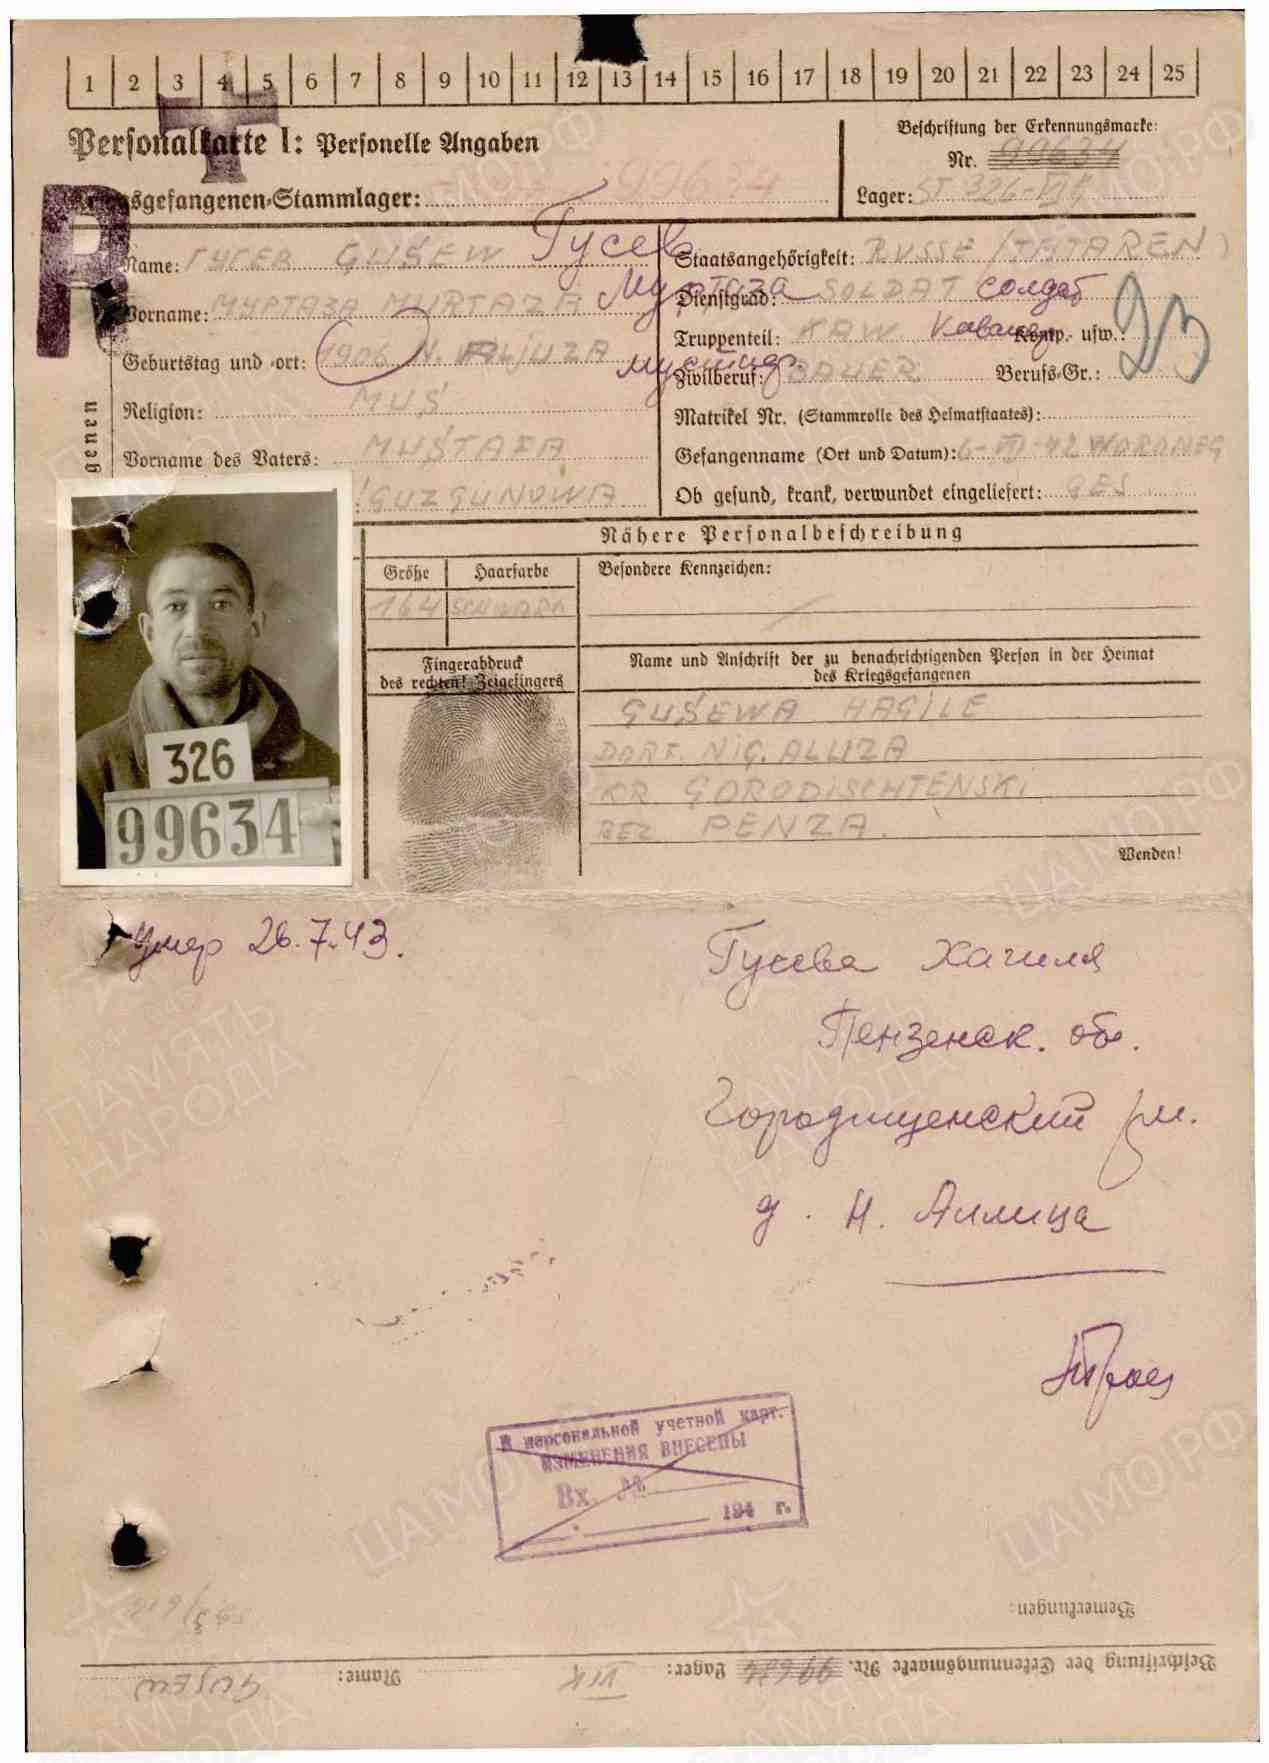 1 2 3 4 5 6 7 8 9 10 11 12 13 14 15 16 17 18 19 20 21 22 23 24 25
Personalkarte I: Personelle Angaben
Beschriftung der Erkennungsmarke:
Nr. 99634
Kriegsgefangenen-Stammlager: 99634
Lager: ST 326-VI K
Name: ГУСЕВ GUŠEW Гусев
Staatsangehörigkeit: RUSSE (TATAREN)
Vorname: МУРТАЗА MURTAZA Муртаза
Dienstgrad: SOLDAT солдат
Truppenteil: KAW. Komp.- usw.:
Geburtstag und -ort: 1906 N. ALJUZA
Zivilberuf: BAUER Berufs-Gr.: 23
Religion: MUŚ
Matrikel Nr. (Stammrolle des Heimatstaates):
Vorname des Vaters: MUŚTAFA
Gefangenname (Ort und Datum): 6-VII-42 WORONEG
GUZGUNOWA
Ob gesund, krank, verwundet eingeliefert: GES
Nähere Personalbeschreibung
Größe Haarfarbe Besondere Kennzeichen:
164 SCHWARZ
Fingerabdruck
des rechten! Zeigefingers
Name und Anschrift der zu benachrichtigenden Person in der Heimat
des Kriegsgefangenen
GUŚEWA HAGILE
DORF. NIG. ALUZA
KR GORODISCHTENSKI
BEZ PENZA.
326
99634
Wenden!
Умер 26.7.43.
Гусева Хагиля
Пензенск. об.
Городищенский
д. Н. Аллица
В персональной учетной карт.
ИЗМЕНЕНИЯ ВНЕСЕНЫ
Вх. №
194 г.
Bemerkungen:
Beschriftung der Erkennungsmarke Nr. 99634 Lager: VI K Name: GUSEW
ПАМЯТЬ НАРОДА
ЦАМО.РФ